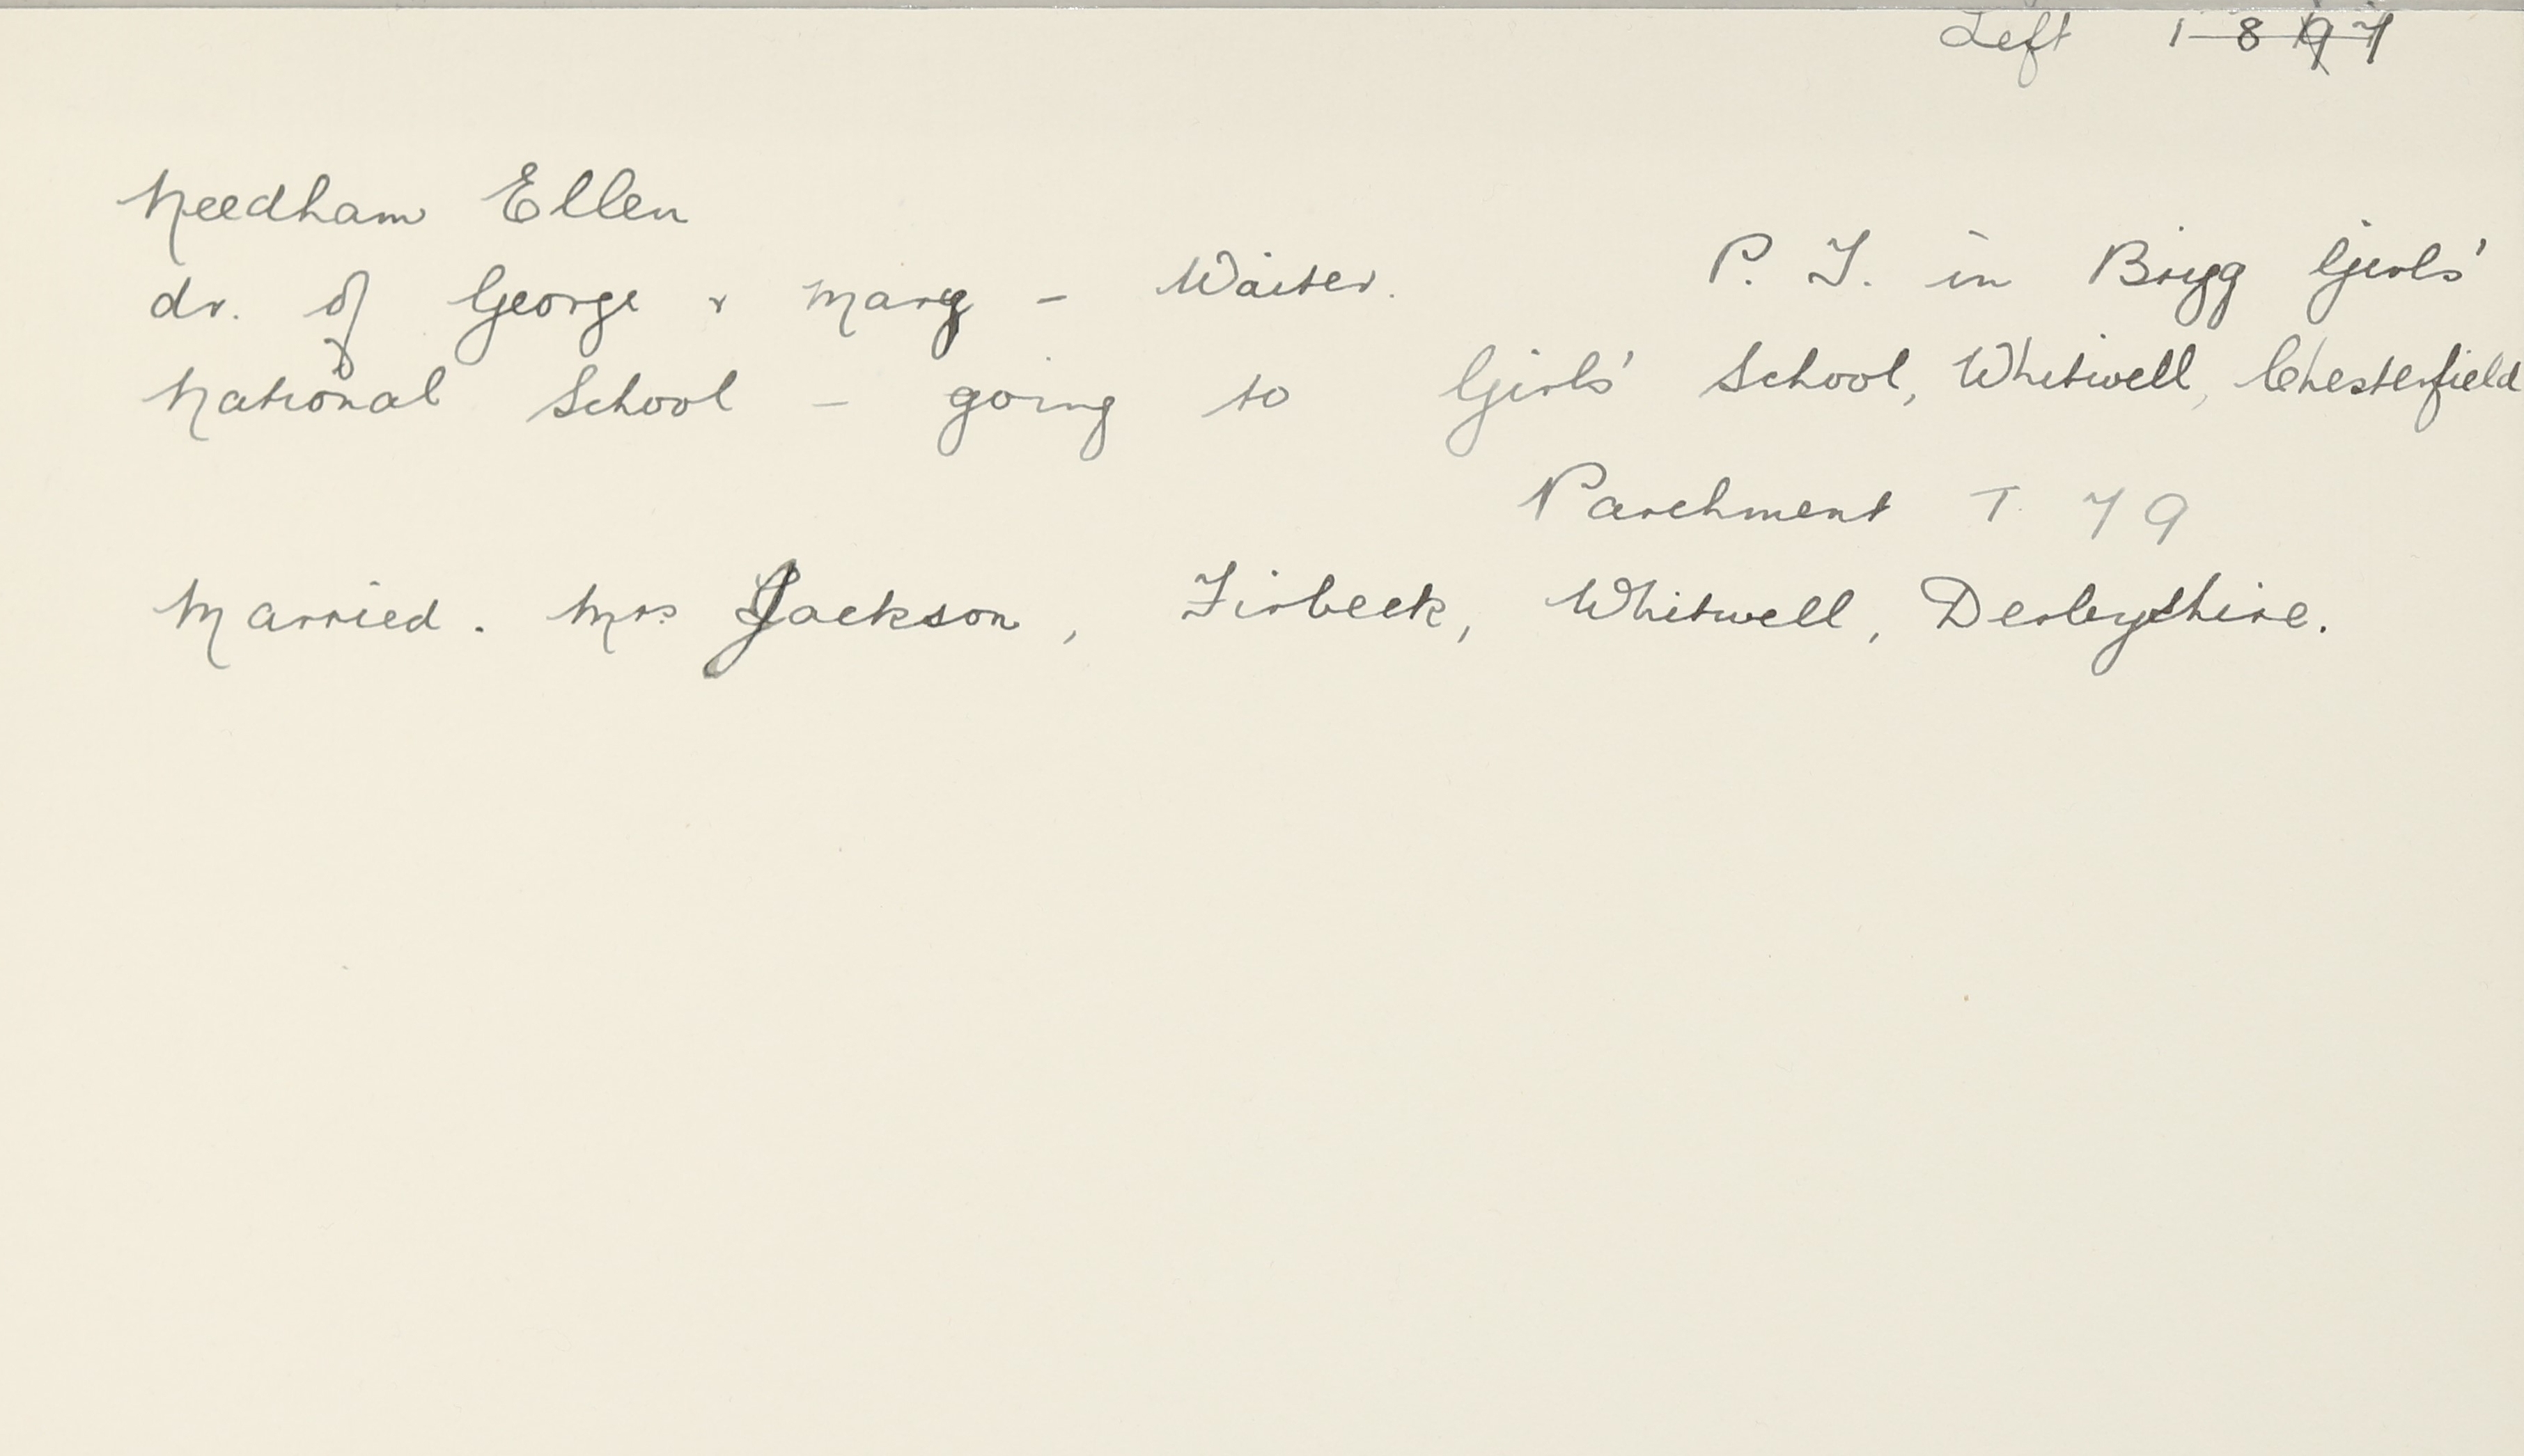 Left 1897
Needham Ellen
dr. of George & Mary - Waiter. P. T. in Brigg Girls'
National School - going to Girls' School, Whitwell, Chesterfield
Parchment T. 79
Married. Mrs Jackson, Firbeck, Whitwell, Derbyshire.